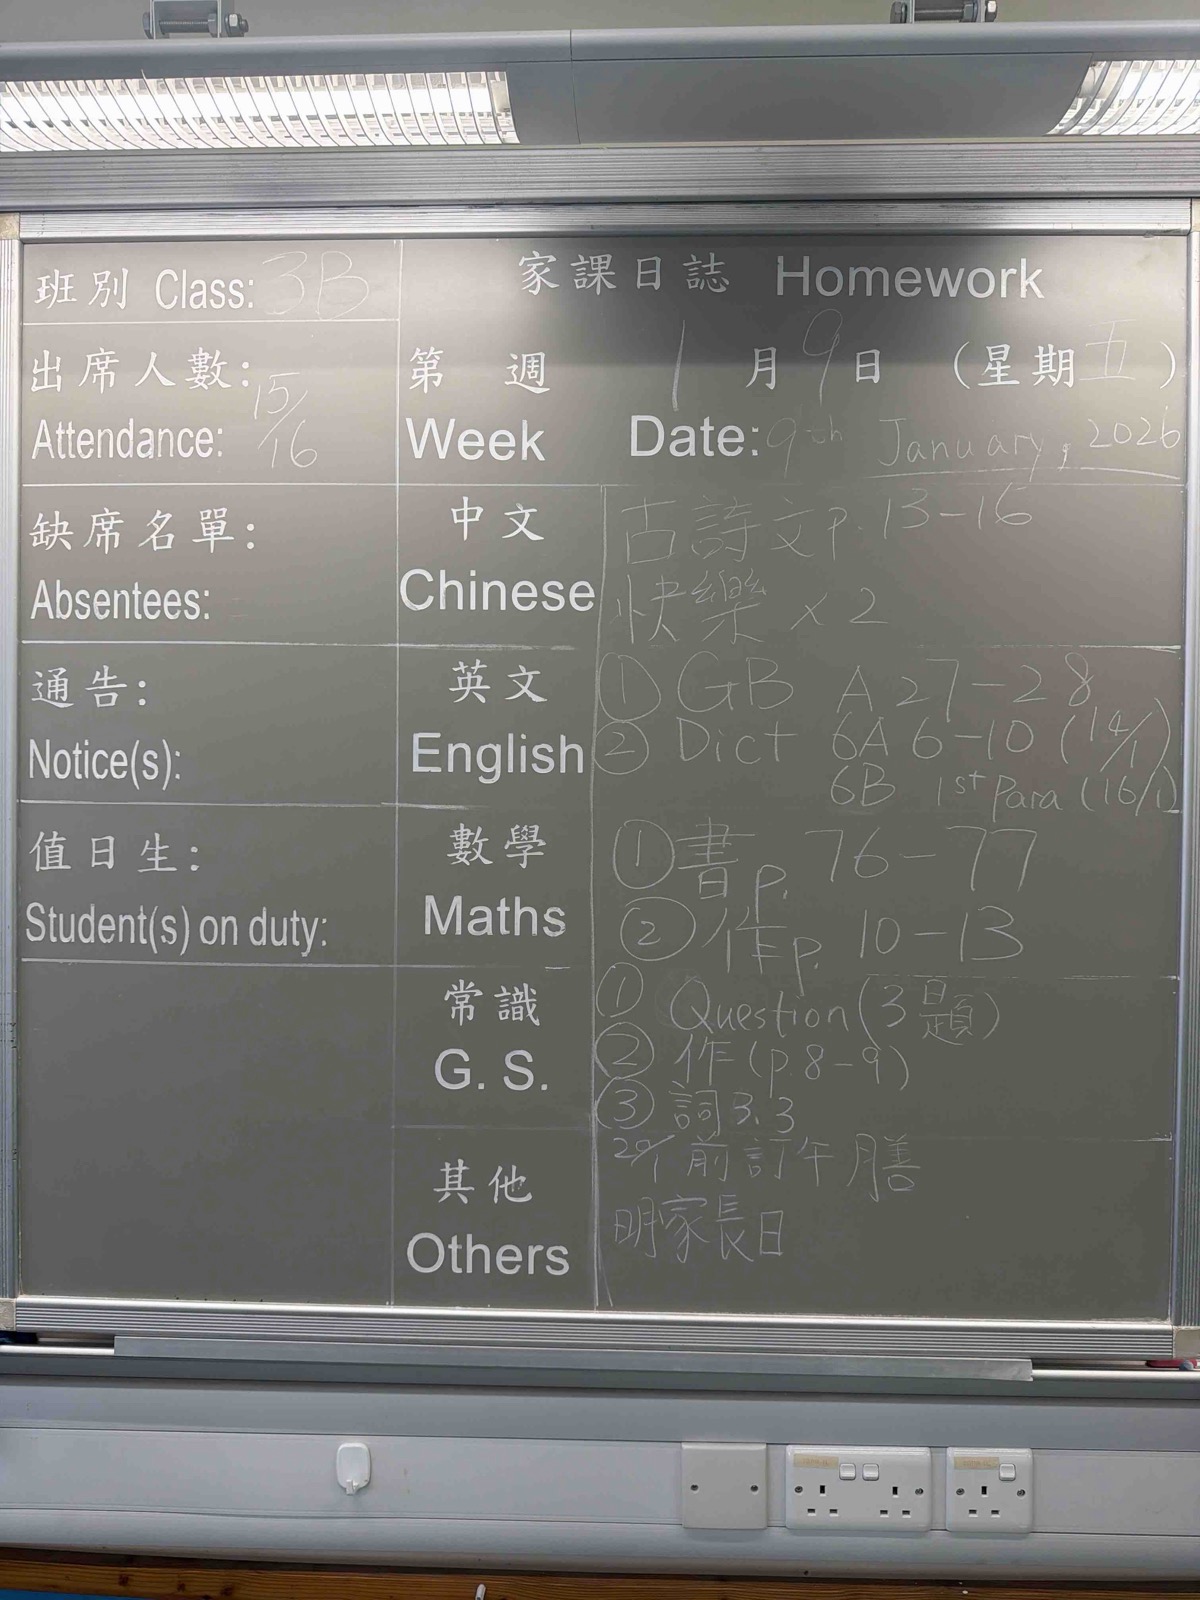 班別 Class: 3B
出席人數: 15/16
Attendance:
缺席名單:
Absentees:
通告:
Notice(s):
值日生:
Student(s) on duty:
家課日誌 Homework
第 週 1月9日 (星期五)
Week Date: 9th January, 2026
中文
Chinese
古詩文P. 13-16
快樂 x 2
英文
English
① GB A 27-28
② Dict 6A 6-10 (14/1)
6B 1st Para (16/1)
數學
Maths
① 書 p. 76-77
② 作 p. 10-13
常識
G. S.
① Question (3題)
② 作 (p.8-9)
③ 詞 3.3
其他
Others
20/1 前訂午膳
明家長日